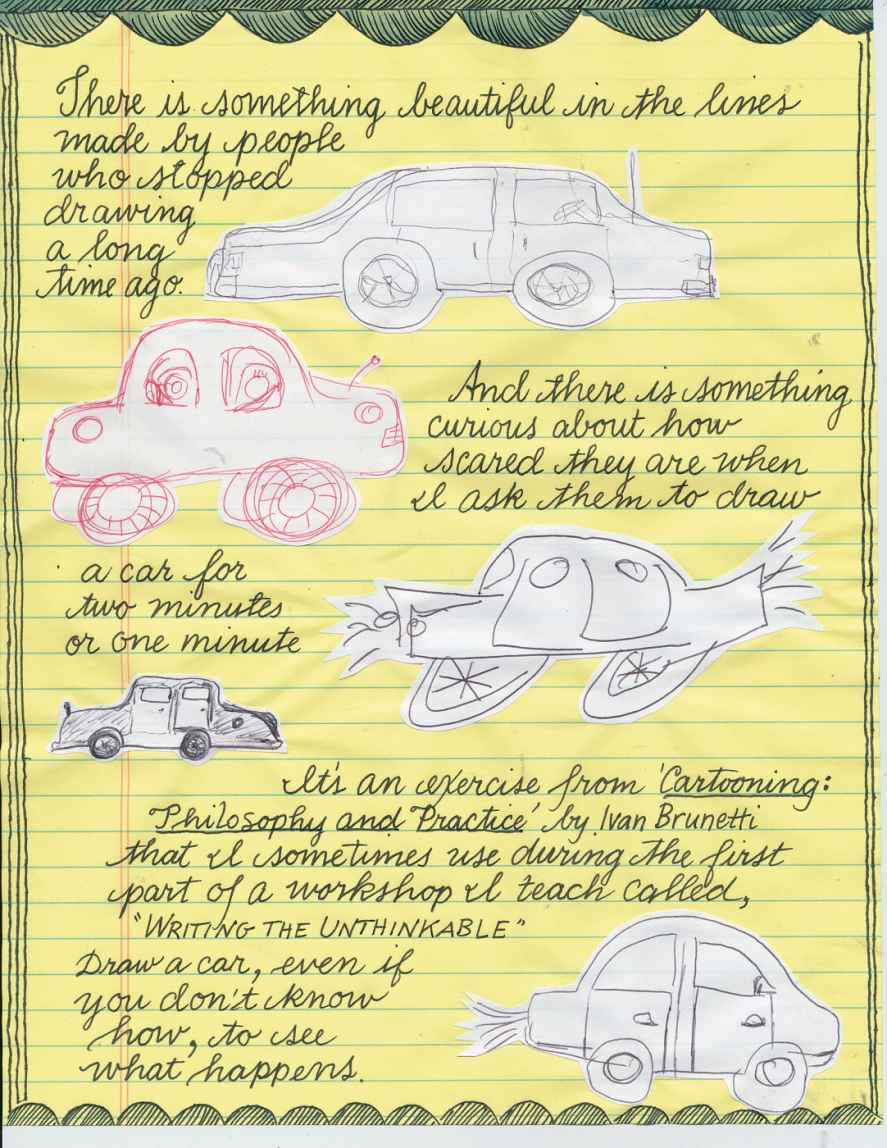 There is something beautiful in the lines
made by people
who stopped
drawing
a long
time ago.
And there is something
curious about how
scared they are when
I ask them to draw
a car for
two minutes
or one minute
It's an exercise from 'Cartooning:
Philosophy and Practice' by Ivan Brunetti
that I sometimes use during the first
part of a workshop I teach called,
"WRITING THE UNTHINKABLE"
Draw a car, even if
you don't know
how, to see
what happens.